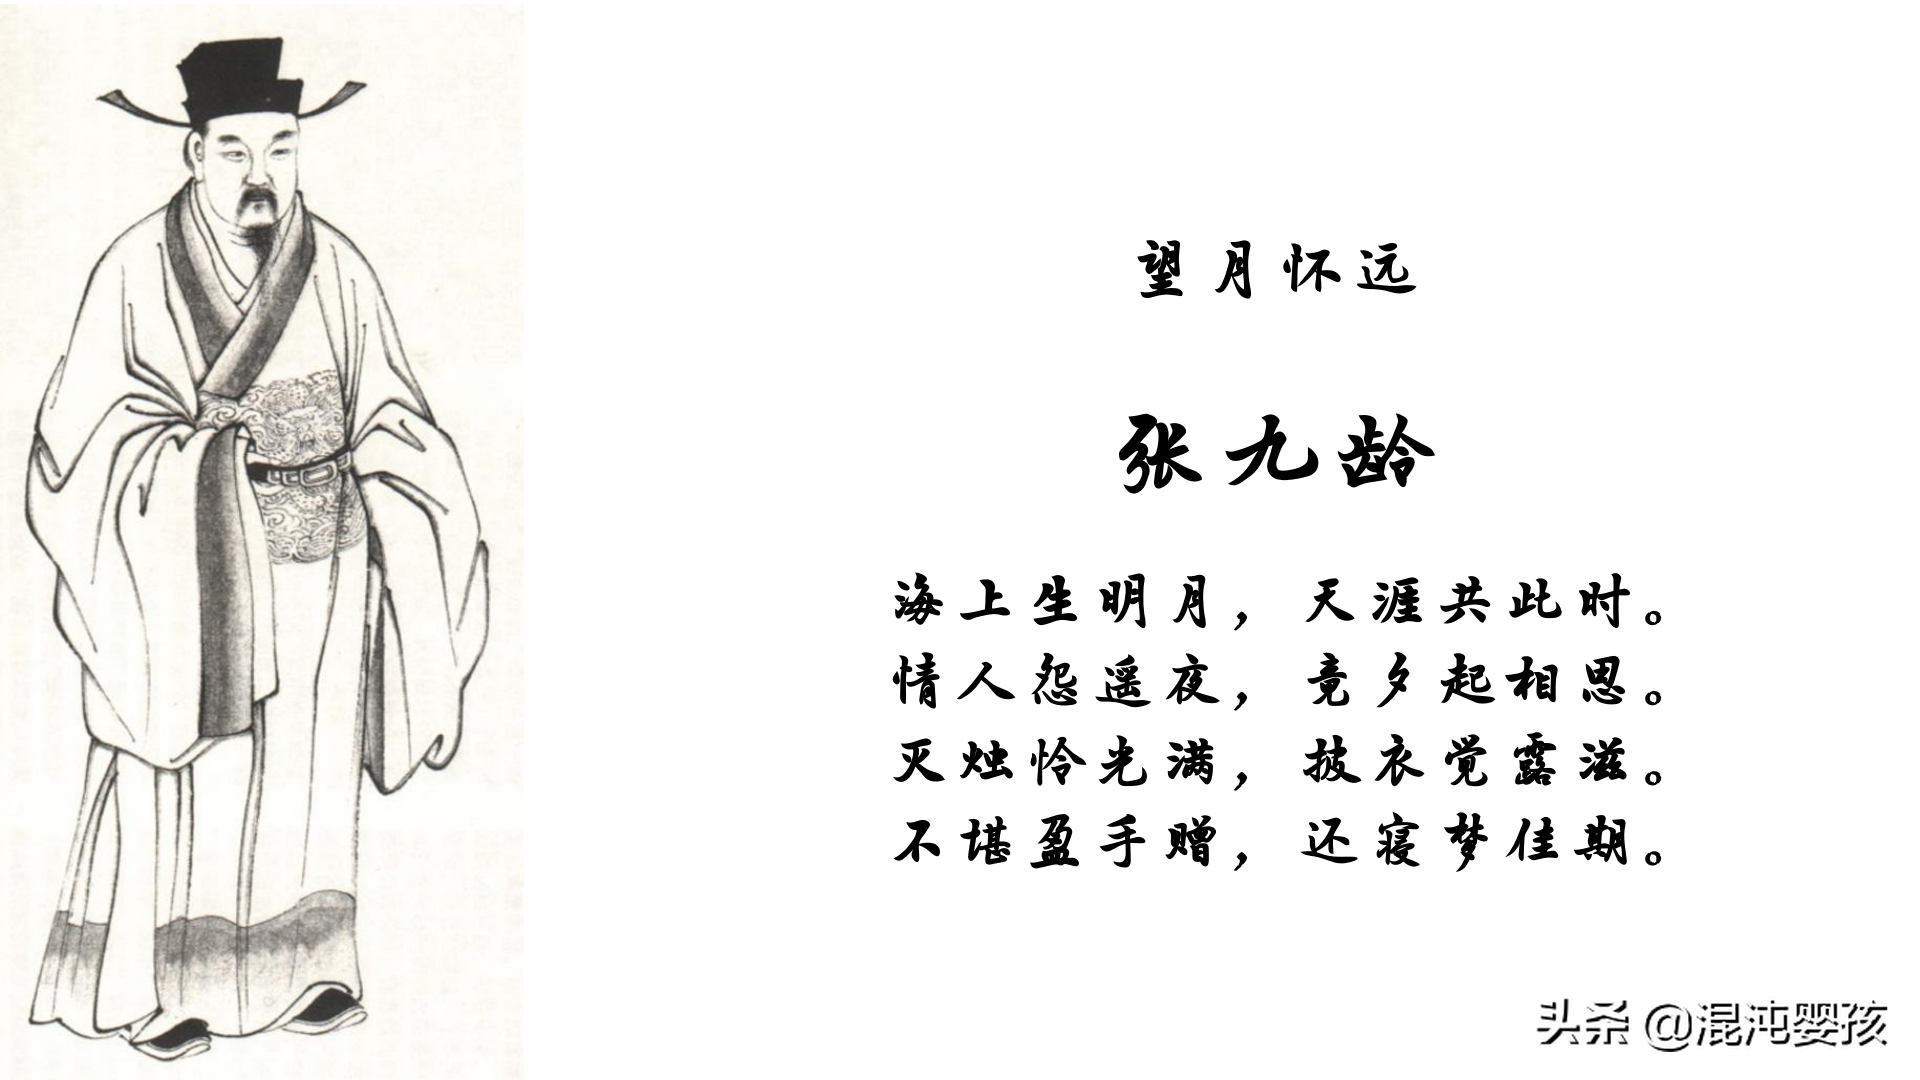 望月怀远
张九龄
海上生明月，天涯共此时。
情人怨遥夜，竟夕起相思。
灭烛怜光满，披衣觉露滋。
不堪盈手赠，还寝梦佳期。
头条 @混沌婴孩